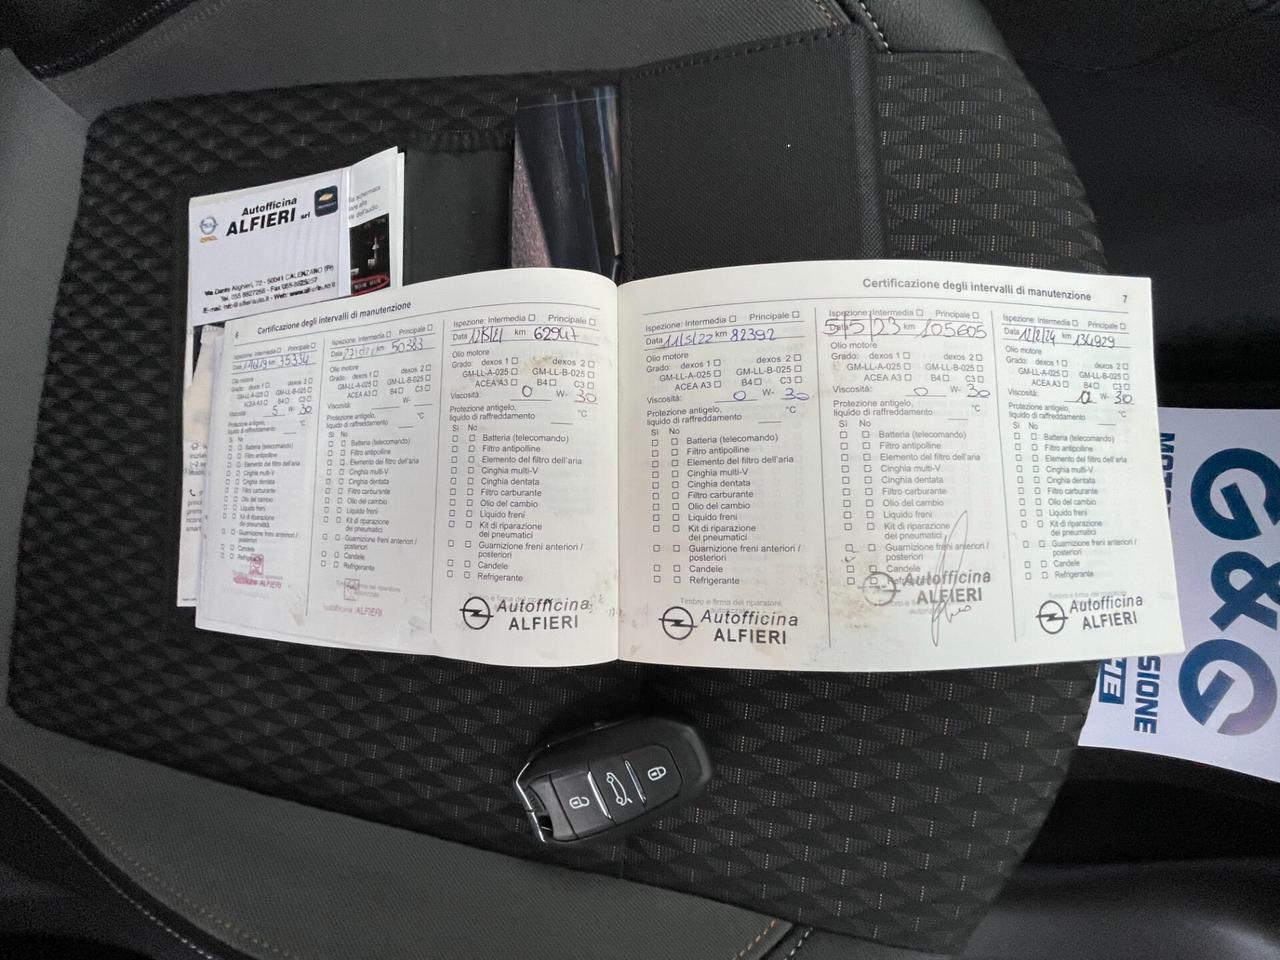 Autofficina
ALFIERI srl
OPEL
Via Dante Alighieri, 72 - 50041 CALENZANO (FI)
6
Certificazione degli intervalli di manutenzione
Ispezione: Intermedia ☐ Principale ☐
km 35334
Olio motore
Grado: dexos 1 ☐ dexos 2 ☐
GM-LL-A-025 ☐ GM-LL-B-025 ☐
ACEA A3 ☐ B4 ☐ C3 ☐
Viscosità: 5 W- 30
Protezione antigelo,
liquido di raffreddamento °C
Sì No
☐ ☐ Batteria (telecomando)
☐ ☐ Filtro antipolline
☐ ☐ Elemento del filtro dell'aria
☐ ☐ Cinghia multi-V
☐ ☐ Cinghia dentata
☐ ☐ Filtro carburante
☐ ☐ Olio del cambio
☐ ☐ Liquido freni
☐ ☐ Kit di riparazione
dei pneumatici
☐ ☐ Guarnizione freni anteriori /
posteriori
☐ ☐ Candele
☐ ☐ Refrigerante
ALFIERI
Ispezione: Intermedia ☐ Principale ☐
Data km 50383
Olio motore
Grado: dexos 1 ☐ dexos 2 ☐
GM-LL-A-025 ☐ GM-LL-B-025 ☐
ACEA A3 ☐ B4 ☐ C3 ☐
Viscosità: W-
Protezione antigelo,
liquido di raffreddamento °C
Sì No
☐ ☐ Batteria (telecomando)
☐ ☐ Filtro antipolline
☐ ☐ Elemento del filtro dell'aria
☐ ☐ Cinghia multi-V
☐ ☐ Cinghia dentata
☐ ☐ Filtro carburante
☐ ☐ Olio del cambio
☐ ☐ Liquido freni
☐ ☐ Kit di riparazione
dei pneumatici
☐ ☐ Guarnizione freni anteriori /
posteriori
☐ ☐ Candele
☐ ☐ Refrigerante
Autofficina ALFIERI
Ispezione: Intermedia ☐ Principale ☐
Data 12/5/21 km 62947
Olio motore
Grado: dexos 1 ☐ dexos 2 ☐
GM-LL-A-025 ☐ GM-LL-B-025 ☐
ACEA A3 ☐ B4 ☐ C3 ☐
Viscosità: 0 W- 30
Protezione antigelo,
liquido di raffreddamento °C
Sì No
☐ ☐ Batteria (telecomando)
☐ ☐ Filtro antipolline
☐ ☐ Elemento del filtro dell'aria
☐ ☐ Cinghia multi-V
☐ ☐ Cinghia dentata
☐ ☐ Filtro carburante
☐ ☐ Olio del cambio
☐ ☐ Liquido freni
☐ ☐ Kit di riparazione
dei pneumatici
☐ ☐ Guarnizione freni anteriori /
posteriori
☐ ☐ Candele
☐ ☐ Refrigerante
Timbro e firma del riparatore
Autofficina
ALFIERI
Certificazione degli intervalli di manutenzione
7
Ispezione: Intermedia ☐ Principale ☐
Data 11/5/22 km 82392
Olio motore
Grado: dexos 1 ☐ dexos 2 ☐
GM-LL-A-025 ☐ GM-LL-B-025 ☐
ACEA A3 ☐ B4 ☐ C3 ☐
Viscosità: 0 W- 30
Protezione antigelo,
liquido di raffreddamento °C
Sì No
☐ ☐ Batteria (telecomando)
☐ ☐ Filtro antipolline
☐ ☐ Elemento del filtro dell'aria
☐ ☐ Cinghia multi-V
☐ ☐ Cinghia dentata
☐ ☐ Filtro carburante
☐ ☐ Olio del cambio
☐ ☐ Liquido freni
☐ ☐ Kit di riparazione
dei pneumatici
☐ ☐ Guarnizione freni anteriori /
posteriori
☐ ☐ Candele
☐ ☐ Refrigerante
Timbro e firma del riparatore
Autofficina
ALFIERI
Ispezione: Intermedia ☐ Principale ☐
Data 5/5/23 km 105605
Olio motore
Grado: dexos 1 ☐ dexos 2 ☐
GM-LL-A-025 ☐ GM-LL-B-025 ☐
ACEA A3 ☐ B4 ☐ C3 ☐
Viscosità: 0 W- 30
Protezione antigelo,
liquido di raffreddamento °C
Sì No
☐ ☐ Batteria (telecomando)
☐ ☐ Filtro antipolline
☐ ☐ Elemento del filtro dell'aria
☐ ☐ Cinghia multi-V
☐ ☐ Cinghia dentata
☐ ☐ Filtro carburante
☐ ☐ Olio del cambio
☐ ☐ Liquido freni
☐ ☐ Kit di riparazione
dei pneumatici
☐ ☐ Guarnizione freni anteriori /
posteriori
☐ ☐ Candele
☐ ☐ Refrigerante
Autofficina
ALFIERI
Ispezione: Intermedia ☐ Principale ☐
Data 12/2/24 km 134929
Olio motore
Grado: dexos 1 ☐ dexos 2 ☐
GM-LL-A-025 ☐ GM-LL-B-025 ☐
ACEA A3 ☐ B4 ☐ C3 ☐
Viscosità: W- 30
Protezione antigelo,
liquido di raffreddamento °C
Sì No
☐ ☐ Batteria (telecomando)
☐ ☐ Filtro antipolline
☐ ☐ Elemento del filtro dell'aria
☐ ☐ Cinghia multi-V
☐ ☐ Cinghia dentata
☐ ☐ Filtro carburante
☐ ☐ Olio del cambio
☐ ☐ Liquido freni
☐ ☐ Kit di riparazione
dei pneumatici
☐ ☐ Guarnizione freni anteriori /
posteriori
☐ ☐ Candele
☐ ☐ Refrigerante
Timbro e firma del riparatore
Autofficina
ALFIERI
G&G